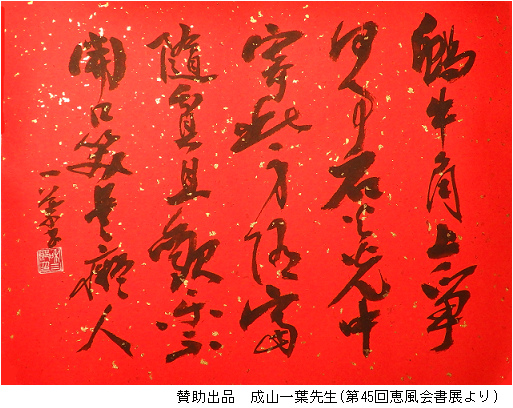 蝸牛角上爭
何事石火光中
寄此身随富
隨貧且歡樂不
開口笑是癡人
一葉
賛助出品　成山一葉先生(第45回恵風会書展より)